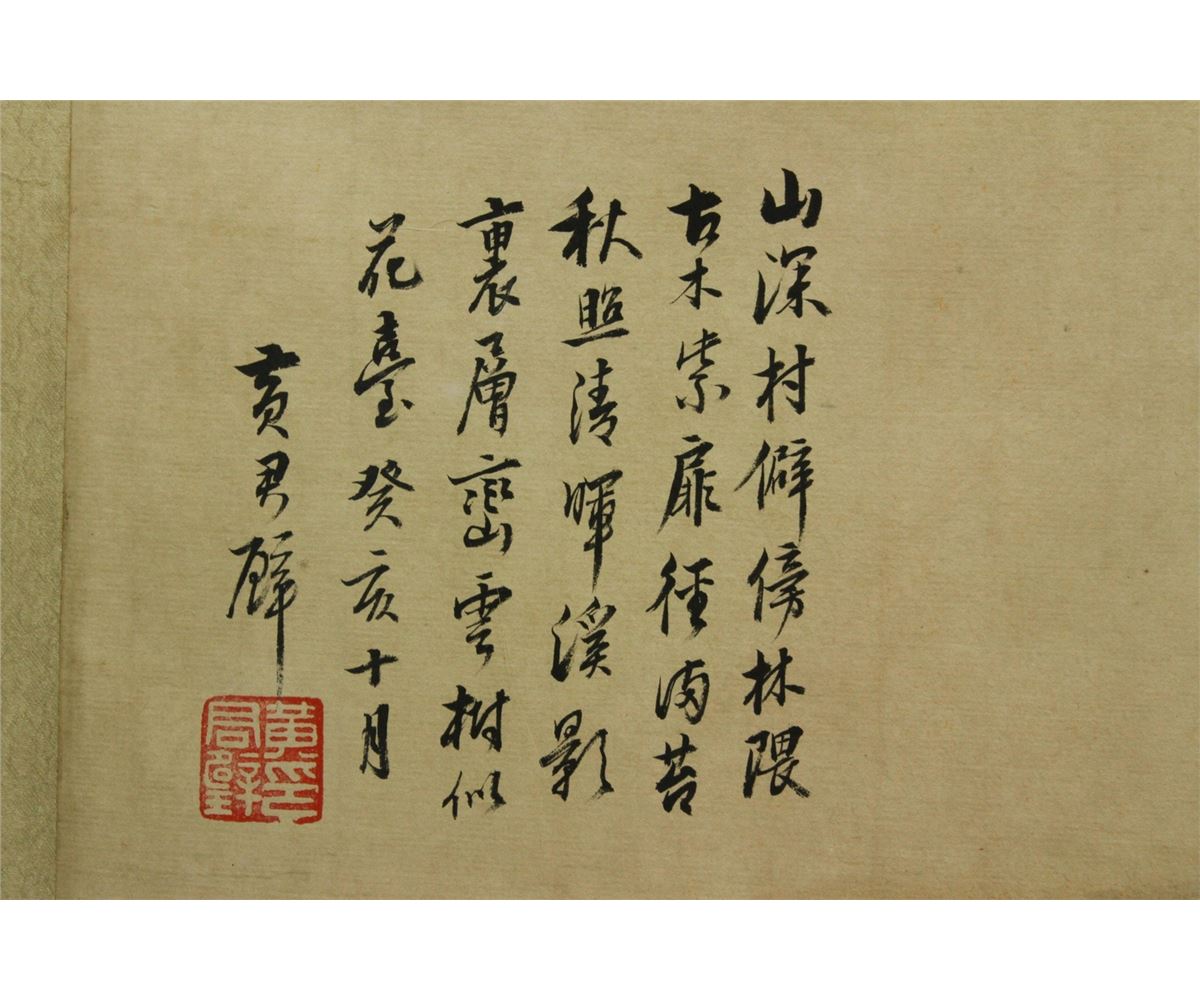 山深村僻傍林隈
古木柴扉徑滿苔
秋照清暉溪影
裏層巒雲樹似
花臺癸亥十月
黃君璧
黃君璧印